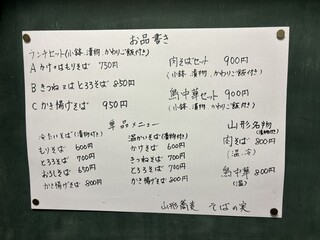 お品書き
ランチセット(小鉢、漬物、かわりご飯付き)
A かけ又はもりそば 750円
B きつね又はとろろそば 850円
C かき揚げそば 950円
肉そばセット 900円
(小鉢、漬物、かわりご飯付き)
鳥中華セット 900円
(小鉢、漬物、かわりご飯付き)
単品メニュー
冷たいそば(漬物付き)
もりそば 600円
とろろそば 700円
おろしそば 650円
かき揚げそば 800円
温かいそば(漬物付き)
かけそば 600円
きつねそば 700円
とろろそば 700円
かき揚げそば 800円
山形名物
(漬物付き)
肉そば 800円
(温、冷)
鳥中華 800円
(温)
山形蕎麦 そばの実